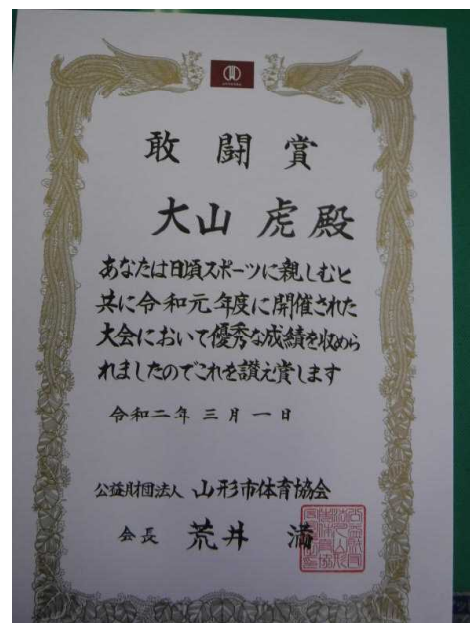 敢闘賞
大山 虎殿
あなたは日頃スポーツに親しむと
共に令和元年度に開催された
大会において優秀な成績を収めら
れましたのでこれを讃え賞します
令和二年三月一日
公益財団法人 山形市体育協会
会長 荒井 満